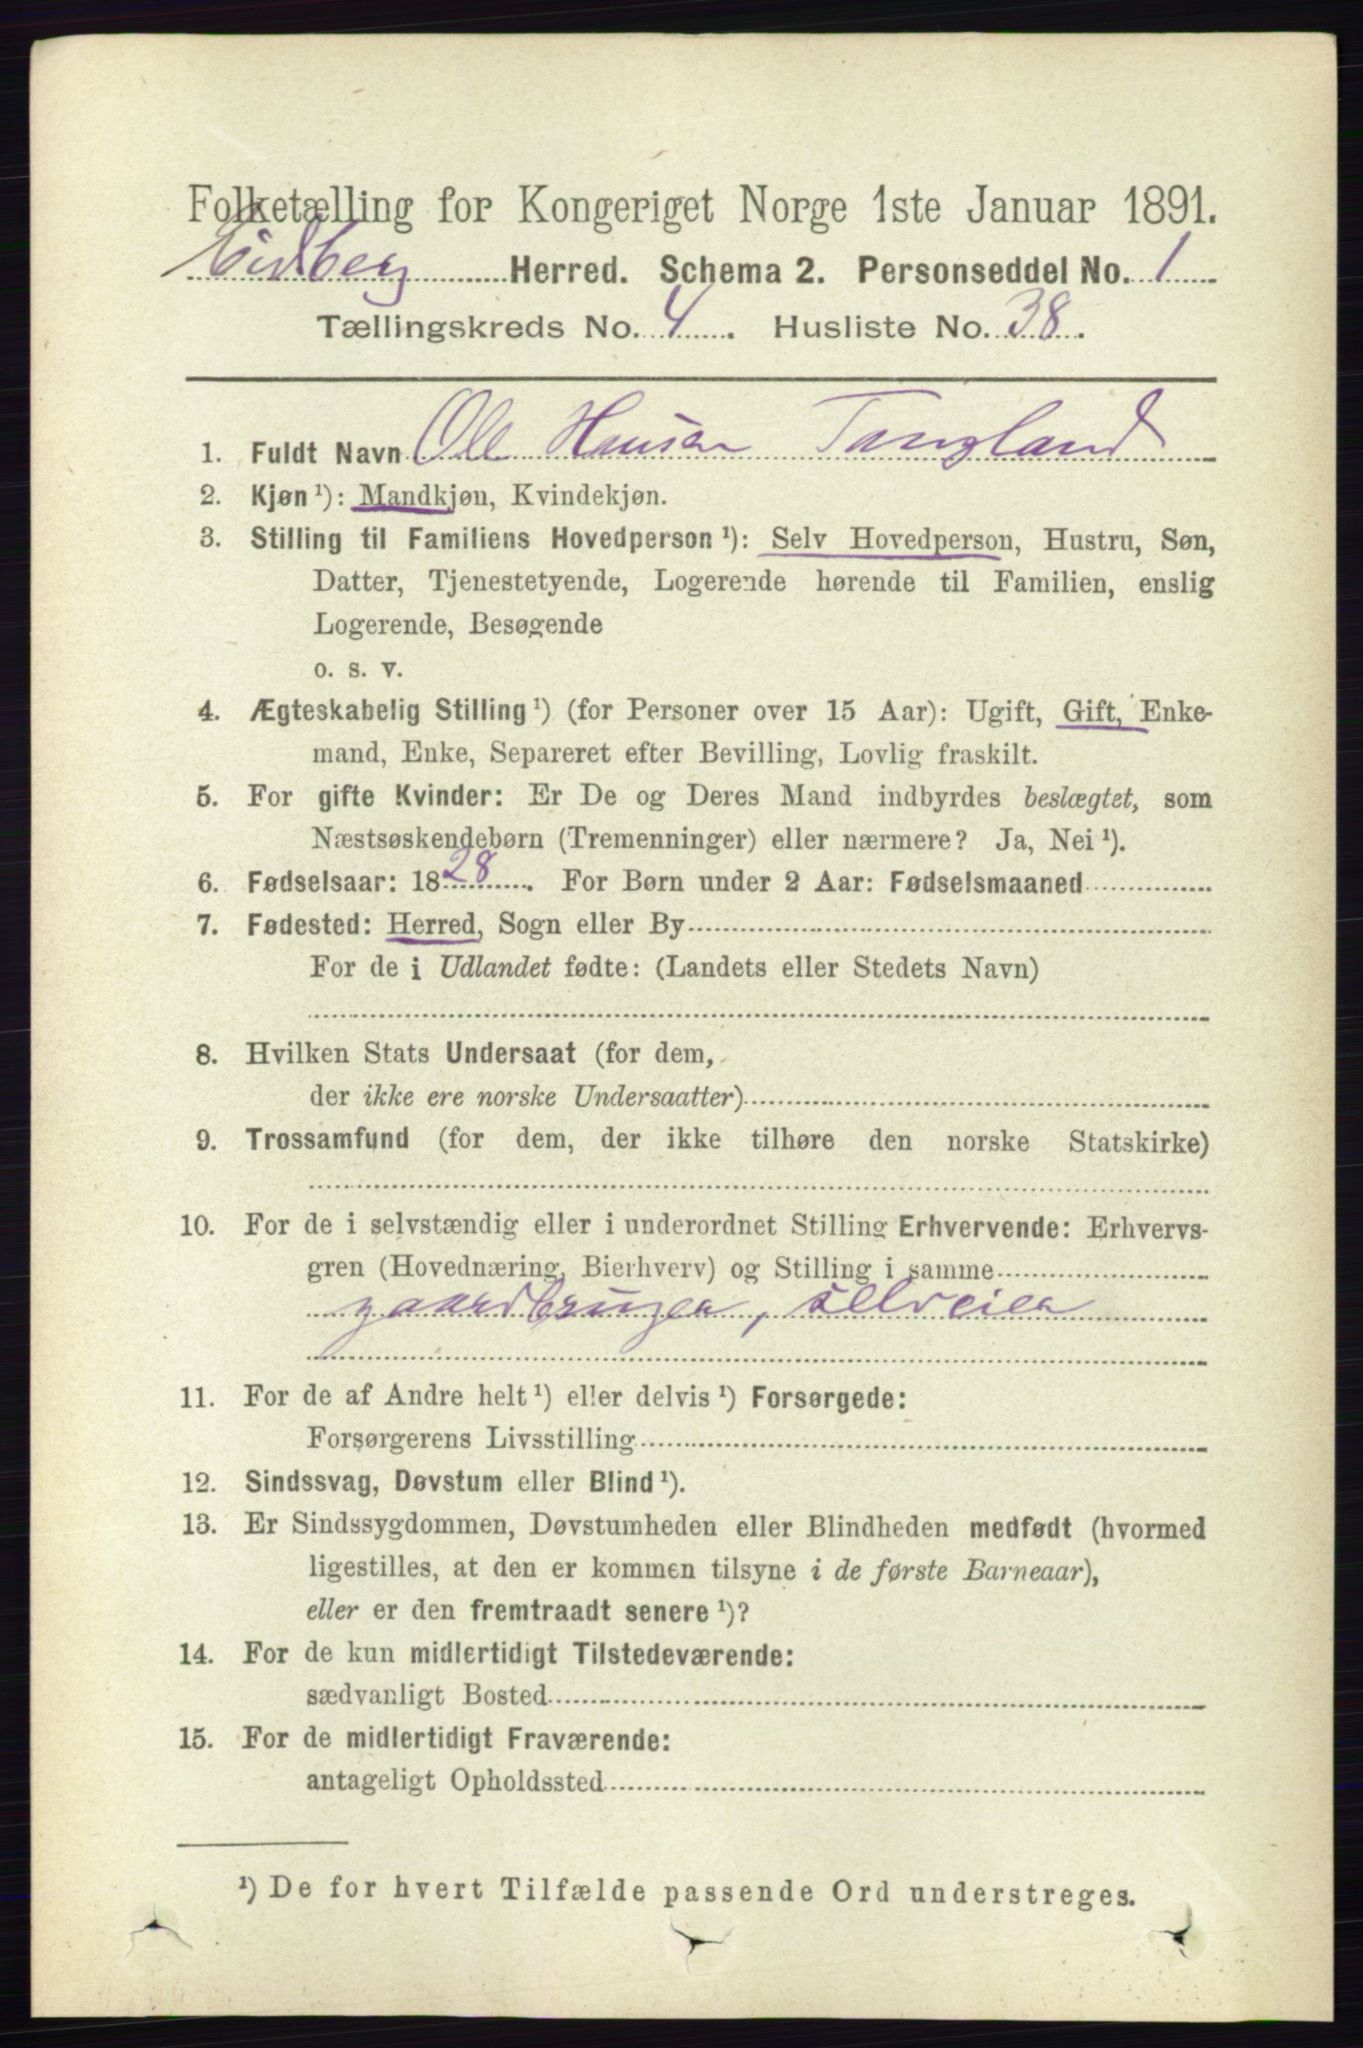 Folketælling for Kongeriget Norge 1ste Januar 1891.
Eidsberg Herred. Schema 2. Personseddel No. 1
Tællingskreds No. 4. Husliste No. 38.
1. Fuldt Navn Ole Hansen Tangland
2. Kjøn ¹): Mandkjøn, Kvindekjøn.
3. Stilling til Familiens Hovedperson ¹): Selv Hovedperson, Hustru, Søn,
Datter, Tjenestetyende, Logerende hørende til Familien, enslig
Logerende, Besøgende
o. s. v.
4. Ægteskabelig Stilling ¹) (for Personer over 15 Aar): Ugift, Gift, Enke-
mand, Enke, Separeret efter Bevilling, Lovlig fraskilt.
5. For gifte Kvinder: Er De og Deres Mand indbyrdes beslægtet, som
Næstsøskendebørn (Tremenninger) eller nærmere? Ja, Nei ¹).
6. Fødselsaar: 1828. For Børn under 2 Aar: Fødselsmaaned
7. Fødested: Herred, Sogn eller By
For de i Udlandet fødte: (Landets eller Stedets Navn)
8. Hvilken Stats Undersaat (for dem,
der ikke ere norske Undersaatter)
9. Trossamfund (for dem, der ikke tilhøre den norske Statskirke)
10. For de i selvstændig eller i underordnet Stilling Erhvervende: Erhvervs-
gren (Hovednæring, Bierhverv) og Stilling i samme
gaardbruger, selveier
11. For de af Andre helt ¹) eller delvis ¹) Forsørgede:
Forsørgerens Livsstilling
12. Sindssvag, Døvstum eller Blind ¹).
13. Er Sindssygdommen, Døvstumheden eller Blindheden medfødt (hvormed
ligestilles, at den er kommen tilsyne i de første Barneaar),
eller er den fremtraadt senere ¹)?
14. For de kun midlertidigt Tilstedeværende:
sædvanligt Bosted
15. For de midlertidigt Fraværende:
antageligt Opholdssted
¹) De for hvert Tilfælde passende Ord understreges.